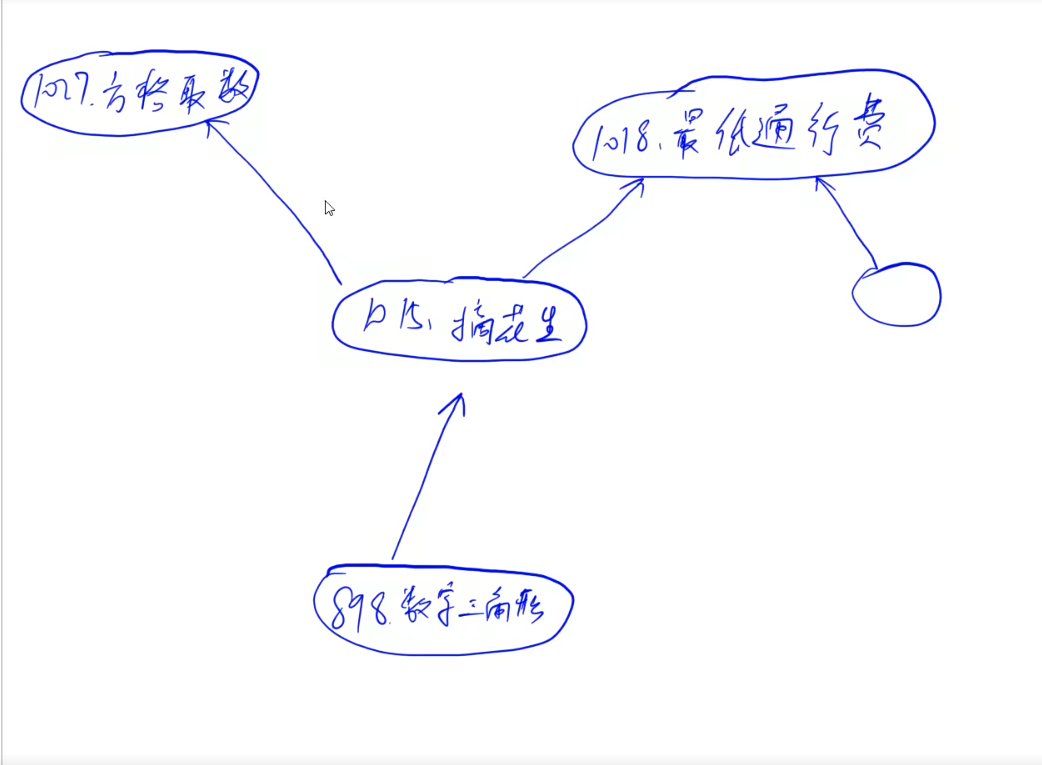 1027.方格取数
1018.最低通行费
1015.摘花生
898.数字三角形